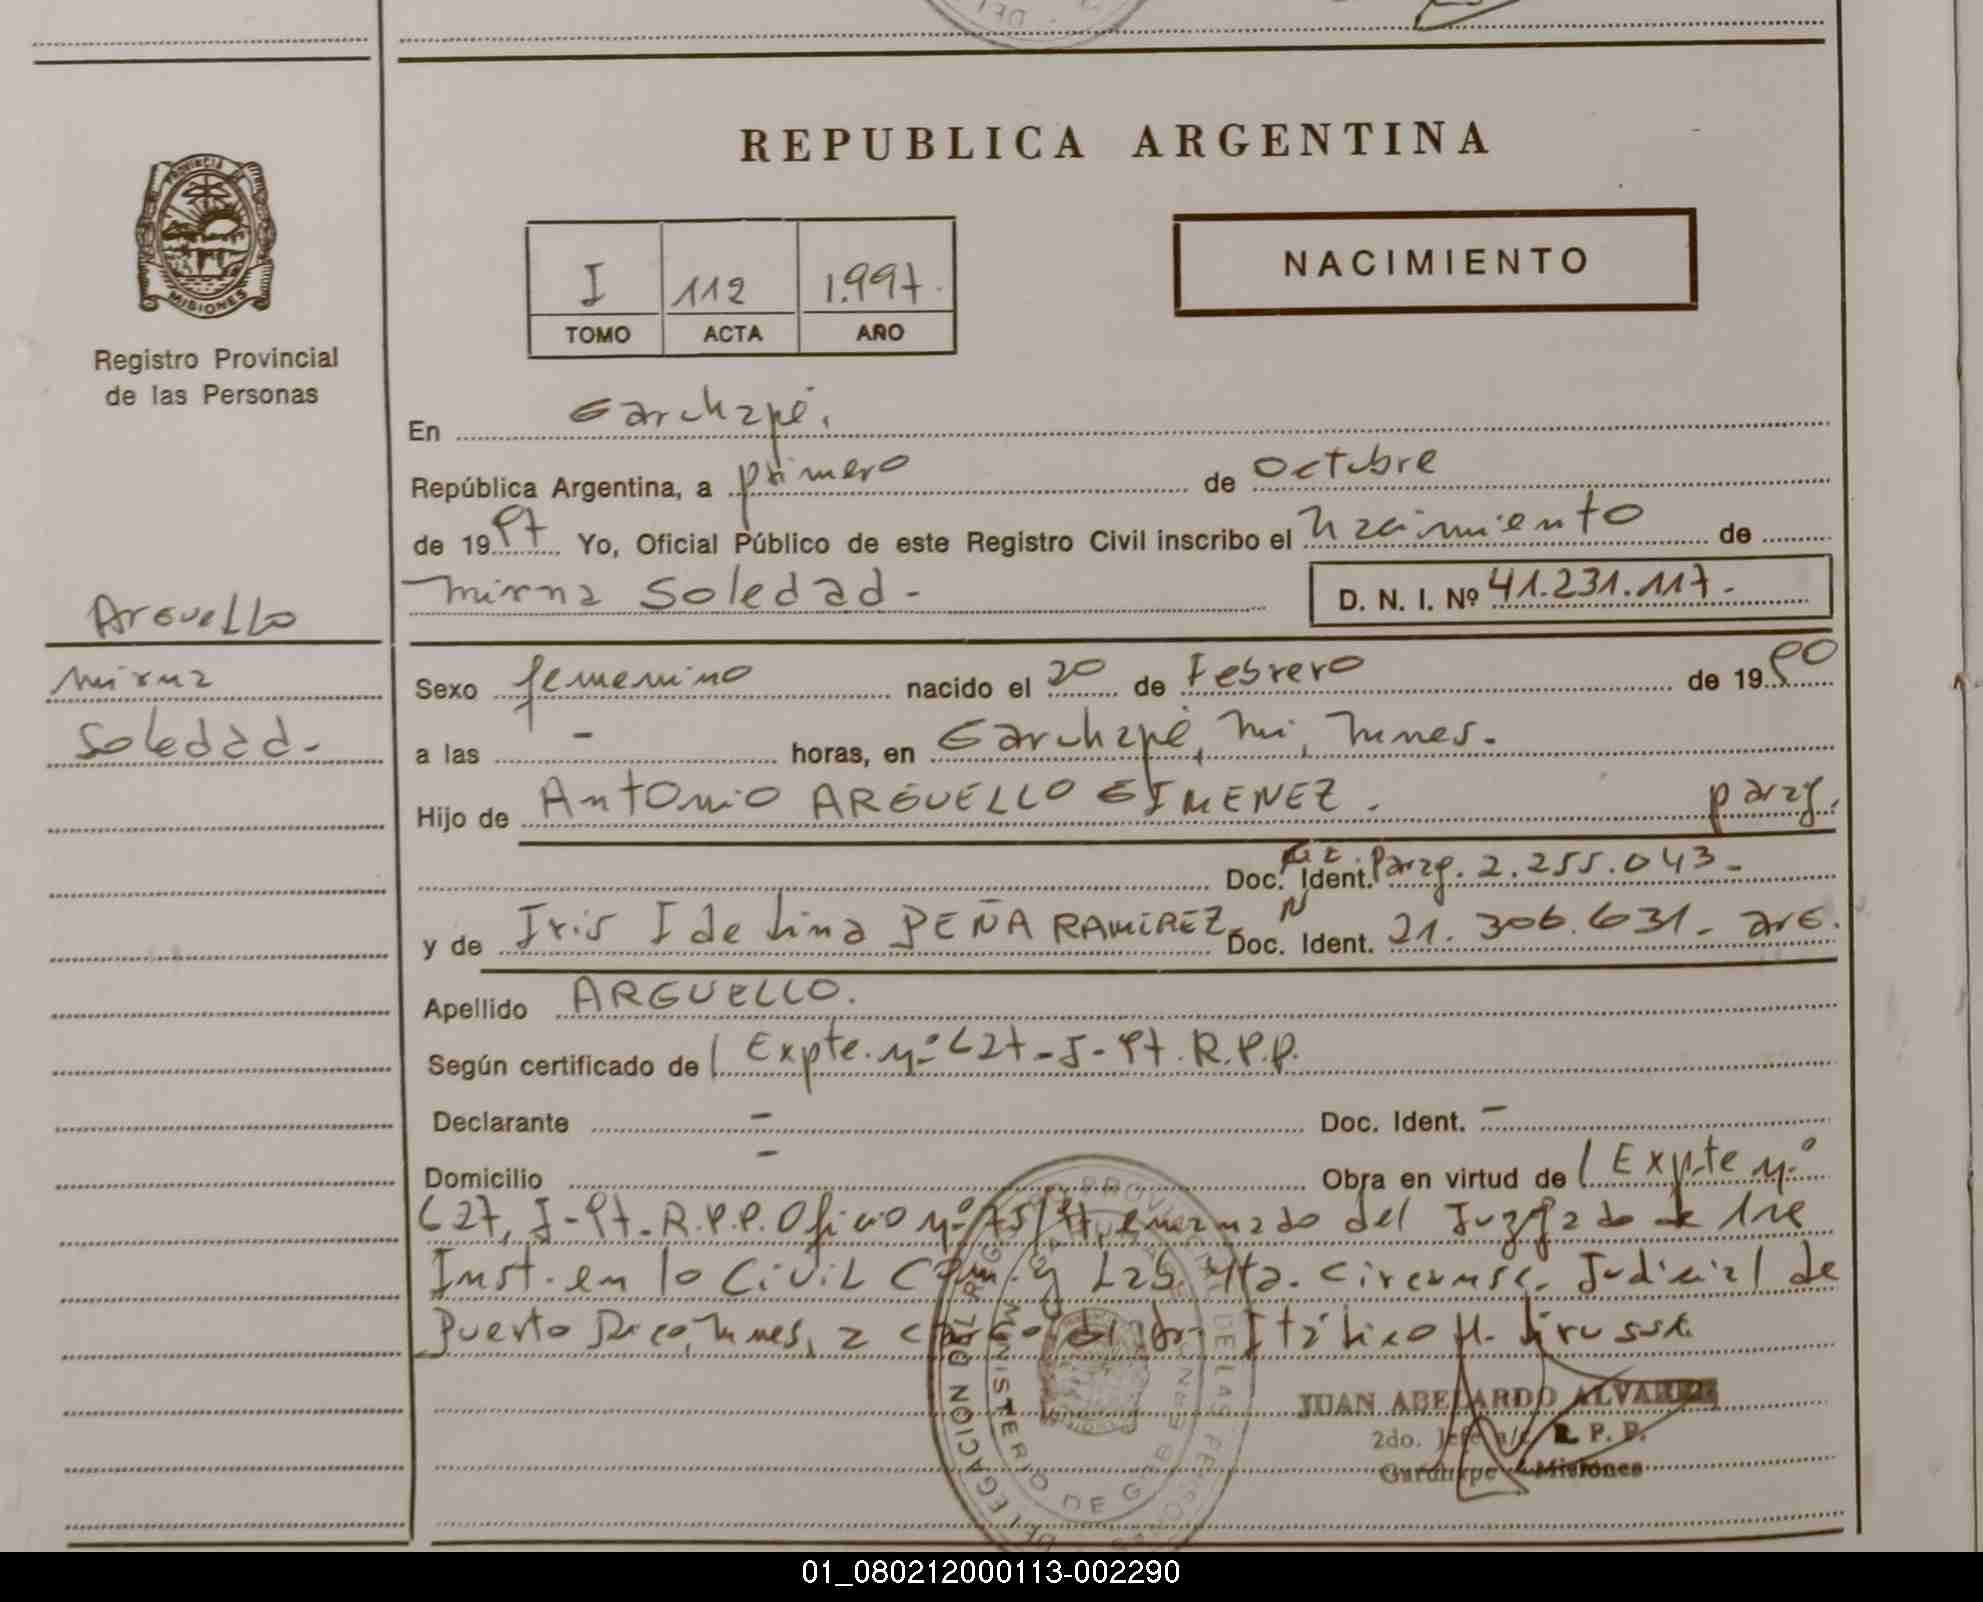 REPUBLICA ARGENTINA
PROVINCIA DE
MISIONES
Registro Provincial
de las Personas
NACIMIENTO
I 112 1.997.
TOMO ACTA AÑO
En Garuhapé.
República Argentina, a primero de Octubre
de 1997 Yo, Oficial Público de este Registro Civil inscribo el nacimiento de
mirna Soledad - D. N. I. Nº 41.231.117.-
Arguello
mirna
Soledad-
Sexo femenino nacido el 20 de Febrero de 1990
a las - horas, en Garuhapé, Mi, Mnes.
Hijo de Antonio ARGUELLO GIMENEZ. parag.
Doc. Ident. Parag. 2.255.043-
y de Iris Idelina PEÑA RAMIREZ Doc. Ident. 21.306.631- arg.
Apellido ARGUELLO.
Según certificado de Expte. nº 627-J-97. R.P.P.
Declarante - Doc. Ident. -
Domicilio - Obra en virtud de Expte nº
627, J-97. R.P.P. Oficio nº 75/97 emanado del Juzgado de 1ra
Inst. en lo Civil Com. y Lab. 4ta. Circunsc. Judicial de
Puerto Rico, Mnes, a cargo del Itálico
DELEGACION DEL REG. PROVINCIAL DE LAS PERSONAS
MINISTERIO DE GOB
JUAN ABELARDO ALVAREZ
2do. Jefe a/c R. P. P.
Garuhape - Misiones
01_080212000113-002290